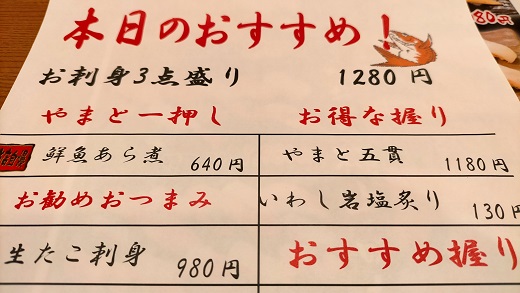 本日のおすすめ!
お刺身3点盛り 1280円
やまと一押し お得な握り
鮮魚あら煮 640円 やまと五貫 1180円
お勧めおつまみ いわし岩塩炙り 130円
生たこ刺身 980円 おすすめ握り
80円